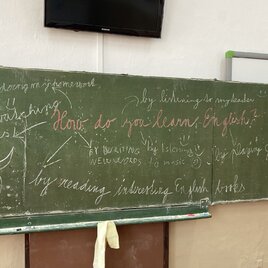 doing my homework
by listening to my leader
watching
How do you learn English?
By listening
to music
by playing
by reading interesting English books